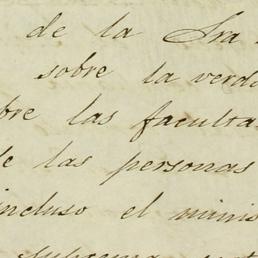 de la Sra
sobre la verda
bre las faculta
de las personas
incluso el minis